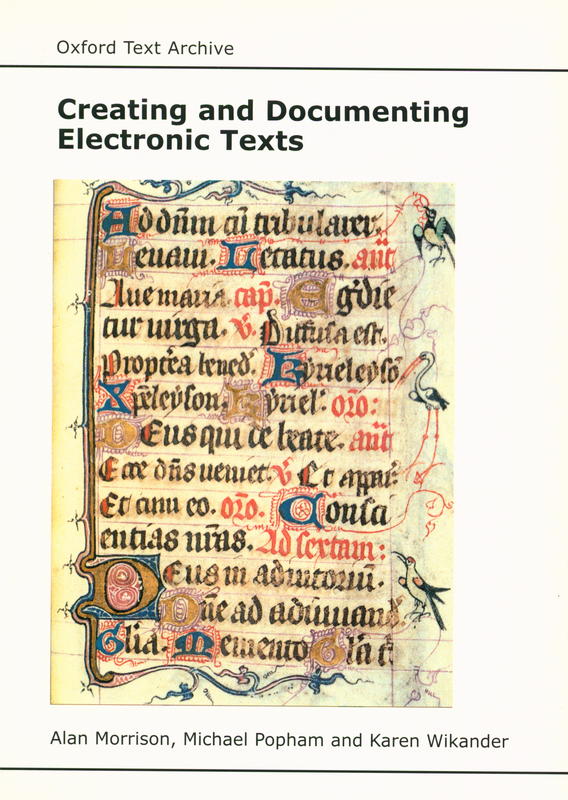 Oxford Text Archive
Creating and Documenting
Electronic Texts
Ad dñm cũ tribularer.
Leuaui. Letatus. añt
Aue maria. cap̃. Egr̃die
tur uirga. v̆. Diffusa est.
Propt̃ea bened̃. Kyrieleyſõ
Xp̃eleyſon. Kyriel᷒. orõ:
Deus qui de beate. añt
Ecce dñs ueniet. v̆ Et
Et cum eo. orõ. Conſci
entias nr̃as. Ad sextam:
Deus in adiutoriũ.
Dñe ad adiuuand̃.
Glĩa. Memento Glĩa
Alan Morrison, Michael Popham and Karen Wikander